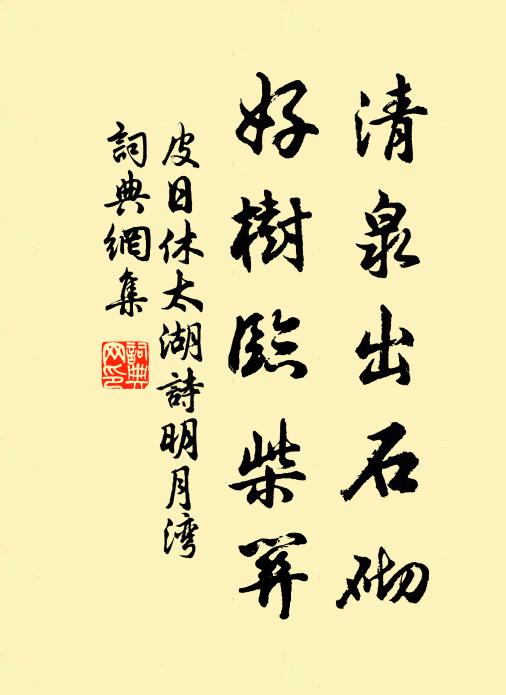 清泉出石砌
好樹臨柴關
皮日休太湖詩明月湾
詞典網集
詞典网印